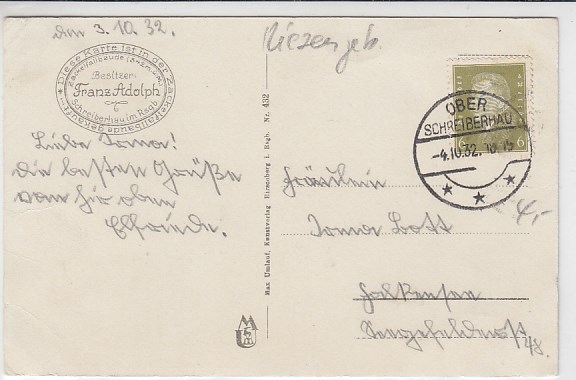 den 3.10.32.
Riesengeb.
Diese Karte ist in der Zackelfallbaude gekauft
Zackelfallbaude
Besitzer:
Franz Adolph
Schreiberhau im Rsgb.
Liebe Irma!
die besten Grüße
von hier oben
Elfriede.
Max Umlauf, Kunstverlag Hirschberg i. Rsgb. Nr. 432
MU
6
OBER
SCHREIBERHAU
-4.10.32.
4,-
Fräulein
Irma Bott
Falkensee
Seegefelderst